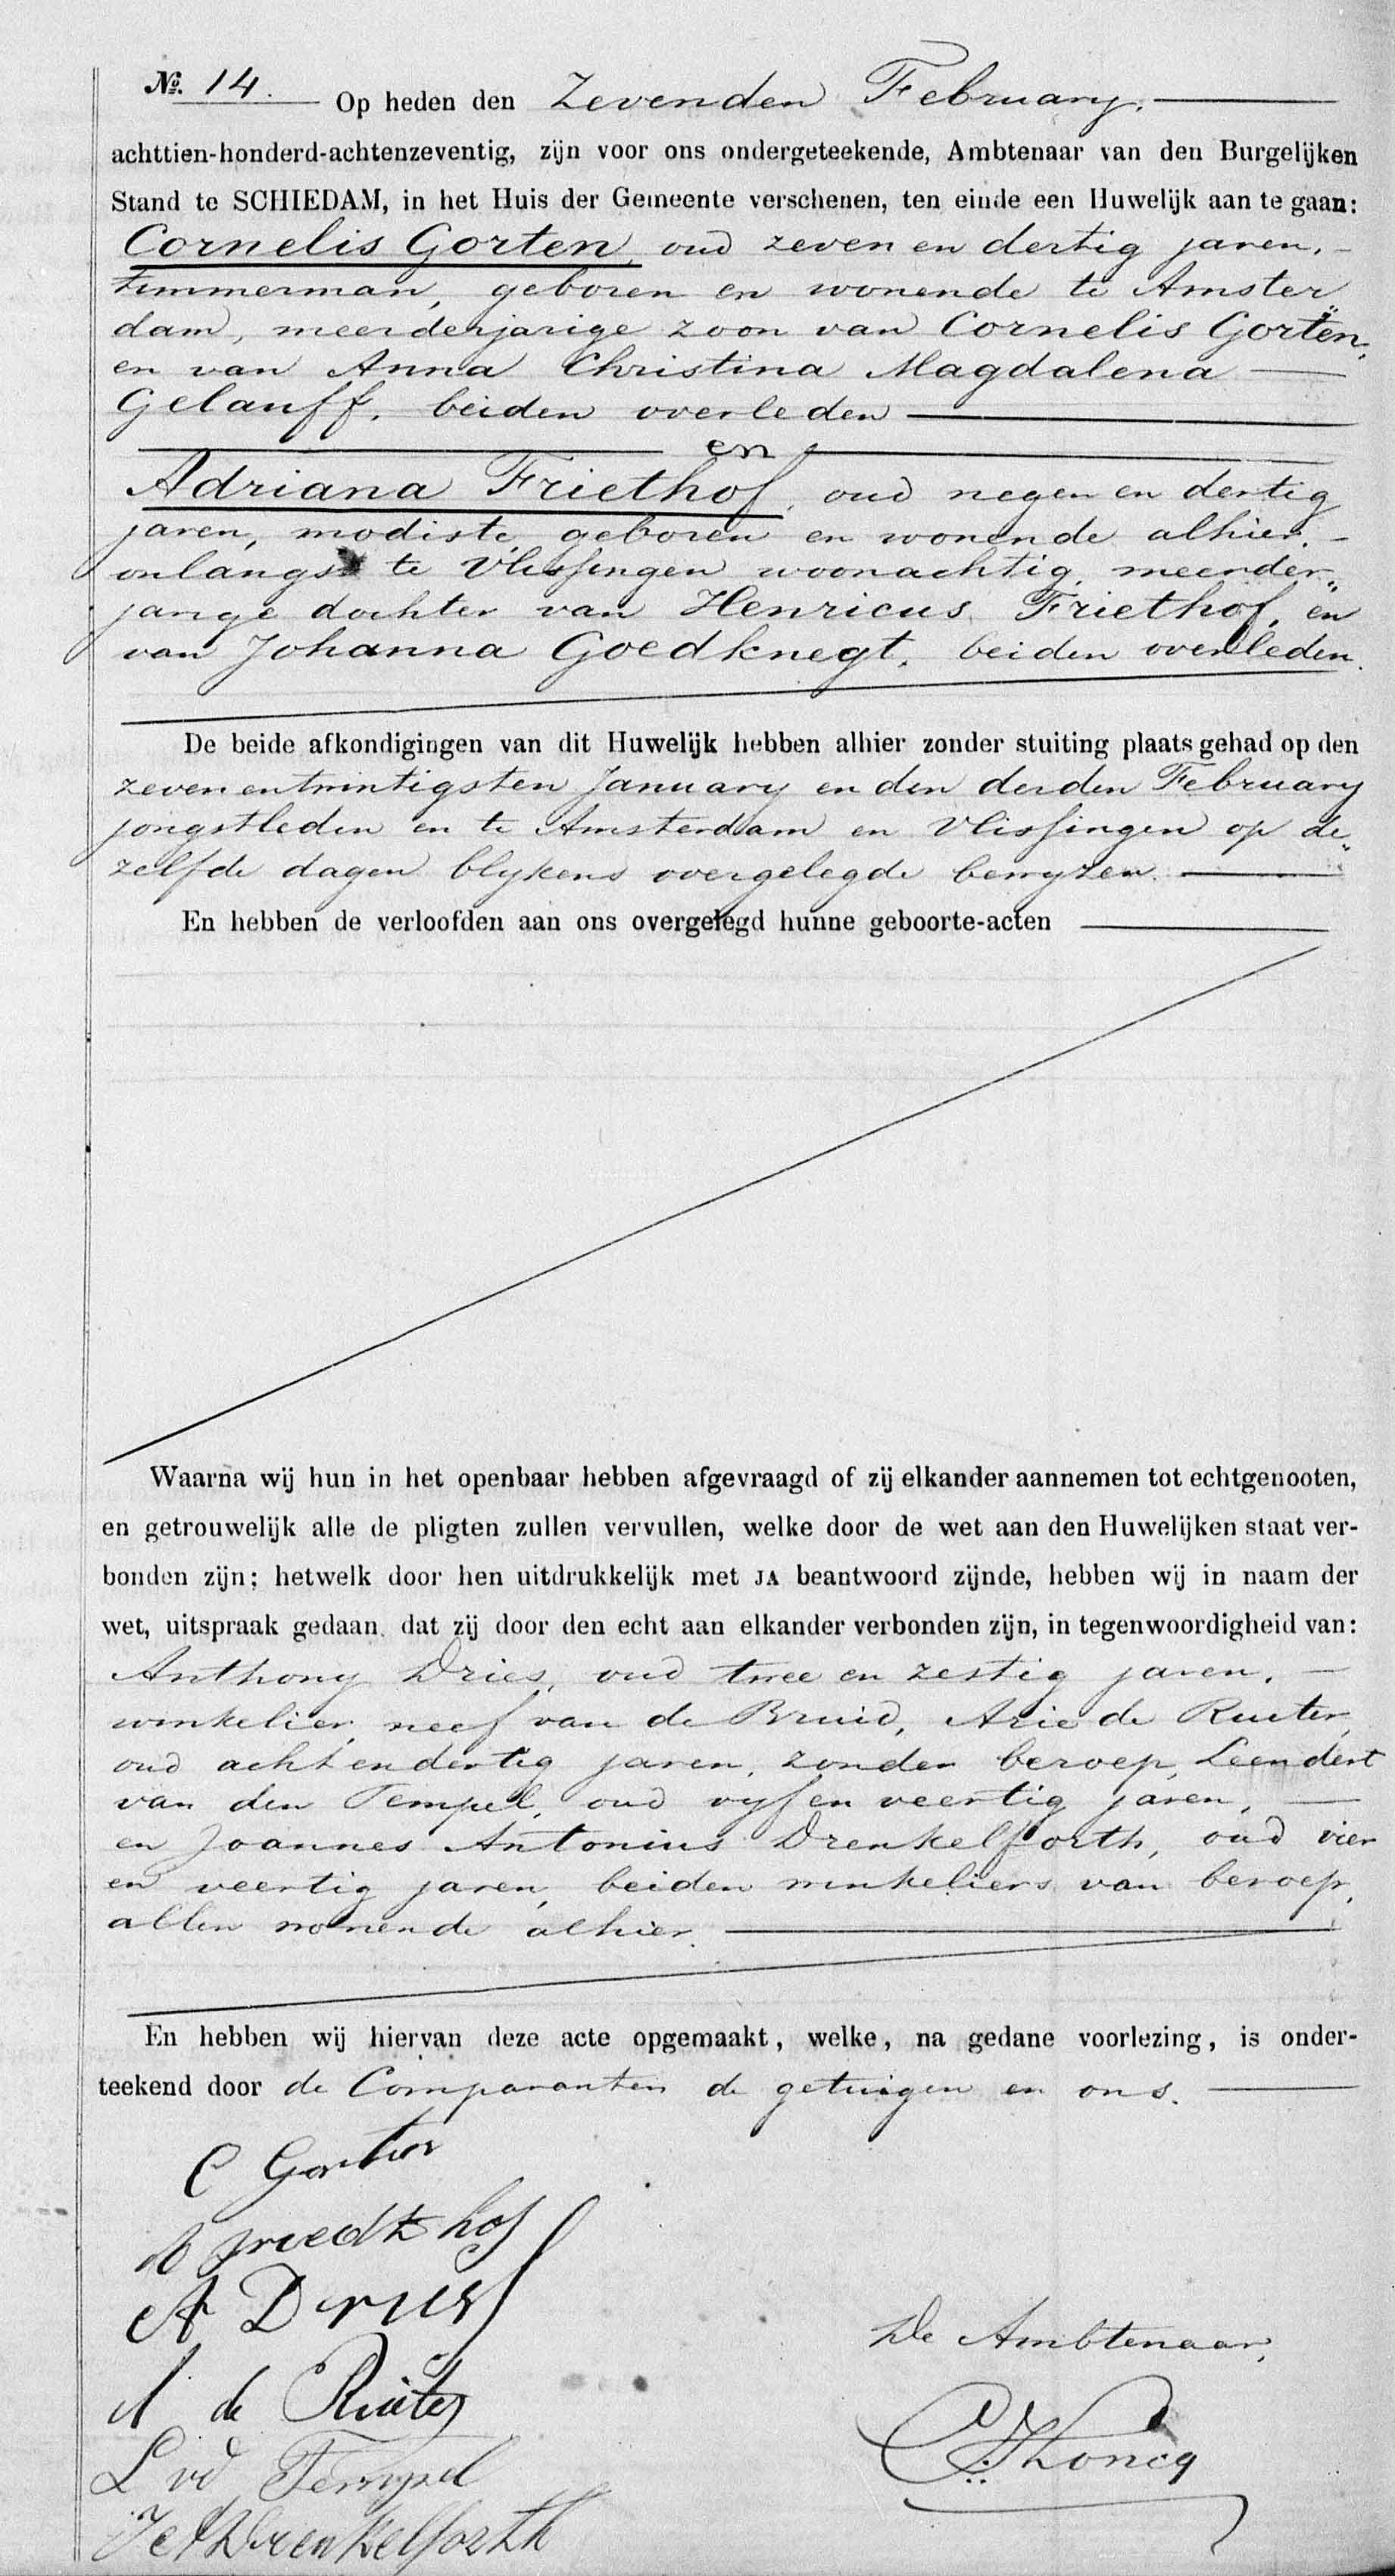 No. 14. Op heden den Zevenden February.
achttien-honderd-achtenzeventig, zijn voor ons ondergeteekende, Ambtenaar van den Burgelijken
Stand te SCHIEDAM, in het Huis der Gemeente verschenen, ten einde een Huwelijk aan te gaan:
Cornelis Gorten, oud zeven en dertig jaren,
timmerman, geboren en wonende te Amster„
dam, meerderjarige zoon van Cornelis Gorten,
en van Anna Christina Magdalena
Gelauff, beiden overleden
en
Adriana Friethof, oud negen en dertig
jaren, modiste, geboren en wonende alhier,
onlangs te Vlissingen woonachtig, meerder„
jarige dochter van Henricus Friethof, en
van Johanna Goedknegt, beiden overleden.
De beide afkondigingen van dit Huwelijk hebben alhier zonder stuiting plaats gehad op den
zevenentwintigsten January en den derden February
jongstleden en te Amsterdam en Vlissingen op de„
zelfde dagen blykens overgelegde bewyzen.
En hebben de verloofden aan ons overgelegd hunne geboorte-acten
Waarna wij hun in het openbaar hebben afgevraagd of zij elkander aannemen tot echtgenooten,
en getrouwelijk alle de pligten zullen vervullen, welke door de wet aan den Huwelijken staat ver-
bonden zijn; hetwelk door hen uitdrukkelijk met JA beantwoord zijnde, hebben wij in naam der
wet, uitspraak gedaan dat zij door den echt aan elkander verbonden zijn, in tegenwoordigheid van:
Anthony Dries, oud twee en zestig jaren,
winkelier, neef van de Bruid, Arie de Ruiter,
oud acht en dertig jaren, zonder beroep, Leendert
van den Tempel, oud vyf en veertig jaren,
en Joannes Antonius Drenkelforth, oud vier
en veertig jaren, beiden winkeliers van beroep,
allen wonende alhier.
En hebben wij hiervan deze acte opgemaakt, welke, na gedane voorlezing, is onder-
teekend door de Comparanten de getuigen en ons.
C Gorten
A Dries
De Ambtenaar,
A de Ruiter
L vd Tempel
J A Drenkelforth